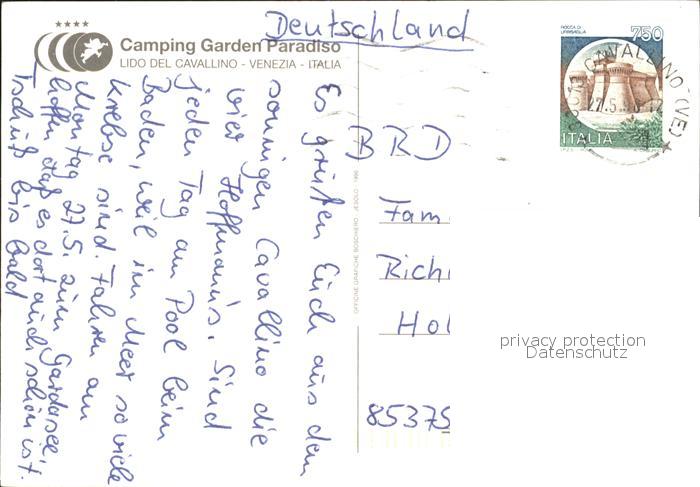 Deutschland
Camping Garden Paradiso
LIDO DEL CAVALLINO - VENEZIA - ITALIA
Es grüßen Euch aus dem
sonnigen Cavallino die
vier Hoffmann's. Sind
jeden Tag am Pool beim
Baden, weil im Meer so viele
Krebse sind. Fahren am
Montag 27.5. zum Gardasee,
hoffen daß es dort auch schön ist.
Tschüß bis bald
OFFICINE GRAFICHE BOSCHIERO - JESOLO - 1996
ROCCA DI
URBISAGLIA
750
ITALIA
CAVALLINO (VE)
27.5.
BRD
Fam
Richi
Hol
85375
privacy protection
Datenschutz